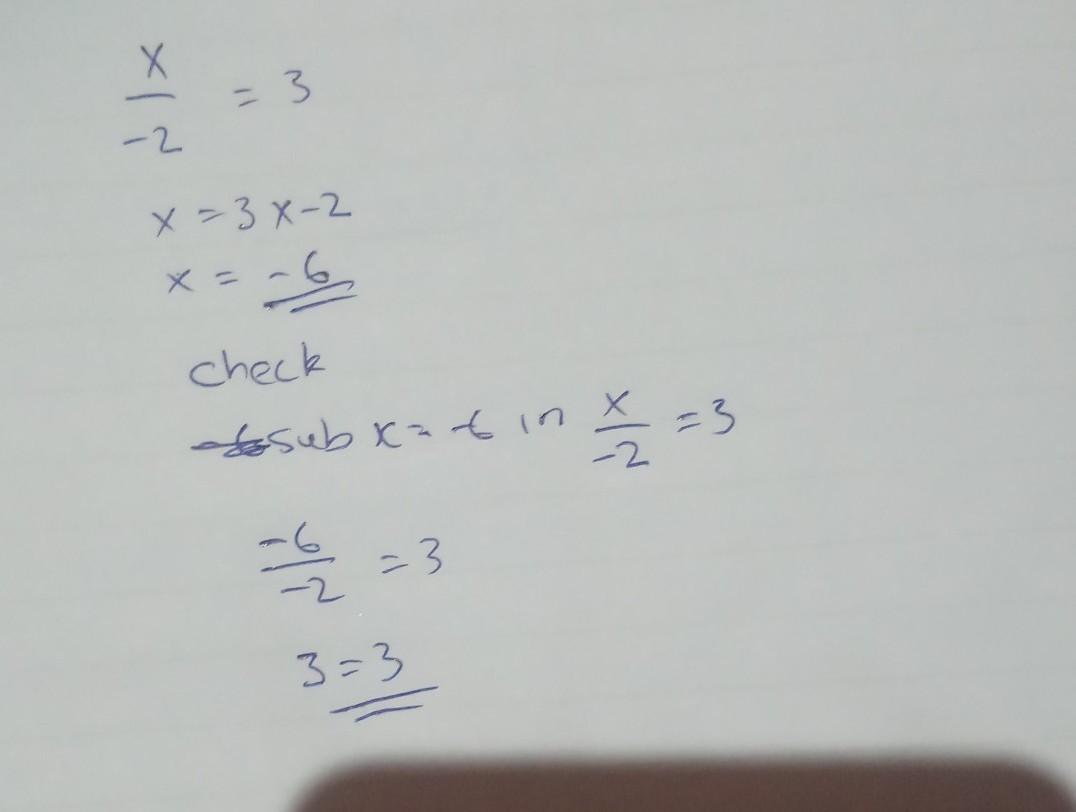 x/-2 = 3
x = 3 x -2
x = -6
check
sub x = -6 in x/-2 = 3
-6/-2 = 3
3 = 3